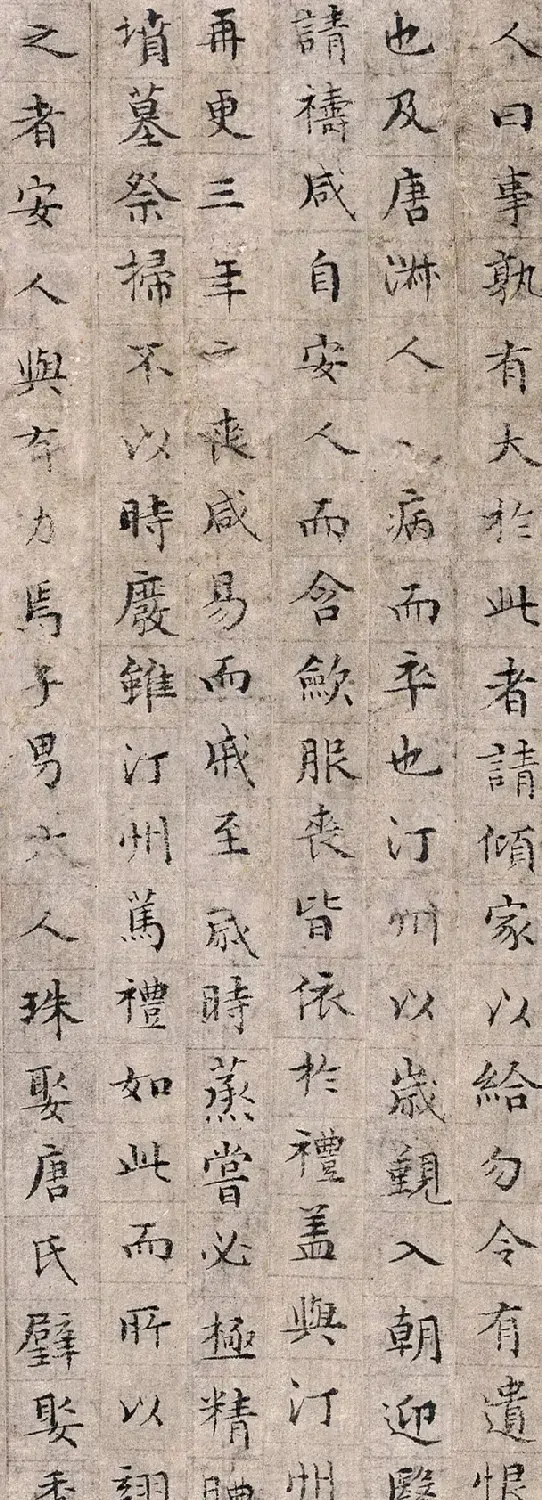 人曰事孰有大於此者請傾家以給勿令有遺恨
也及唐淋人病而卒也汀州以歲覲入朝迎醫
請禱咸自安人而含歛服喪皆依於禮盖與汀州
再更三年喪咸易而戚至歲時蒸嘗必極精
墳墓祭掃不以時廢雖汀州篤禮如此而所以翊
之者安人與有力焉子男六人珠娶唐氏璧娶